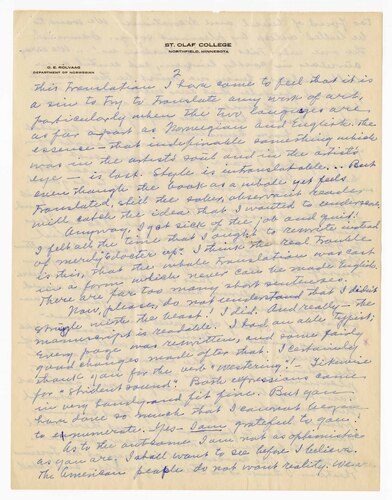 ST. OLAF COLLEGE
NORTHFIELD, MINNESOTA
O. E. ROLVAAG
DEPARTMENT OF NORWEGIAN
2
this translation I have come to feel that it is
a sin to try to translate any work of art,
particularly when the two languages are
as far apart as Norwegian and English. The
essence – that indefinable something which
was in the artist's soul and in the artist's
eye – is lost. Style is untranslatable... But
even though the book as a whole yet feels
translated, still the sober, observant reader
will catch the idea that I wanted to
Anyway, I got sick of the job and quit!
I felt all the time that I ought to rewrite instead
of merely up. I think the real trouble
is this, that the whole translation was cast
in a form which never can be made English.
There are far too many short sentences.
Now, please, do not understand that I didn't
struggle with the beast! I did. And really – the
manuscript is readable. I had an able typist;
Every page was rewritten, and some fairly
good changes made after that. I certainly
thank you for the verb "westering"! – Likewise
for "strident sound" Both expressions came
in very handy and fit fine. But you
have done so much that I cannot begin
to enumerate. Yes – I am grateful to you!
As to the outcome I am not as optimistic
as you are. I shall want to see before I believe.
The American people do not want reality. Wear